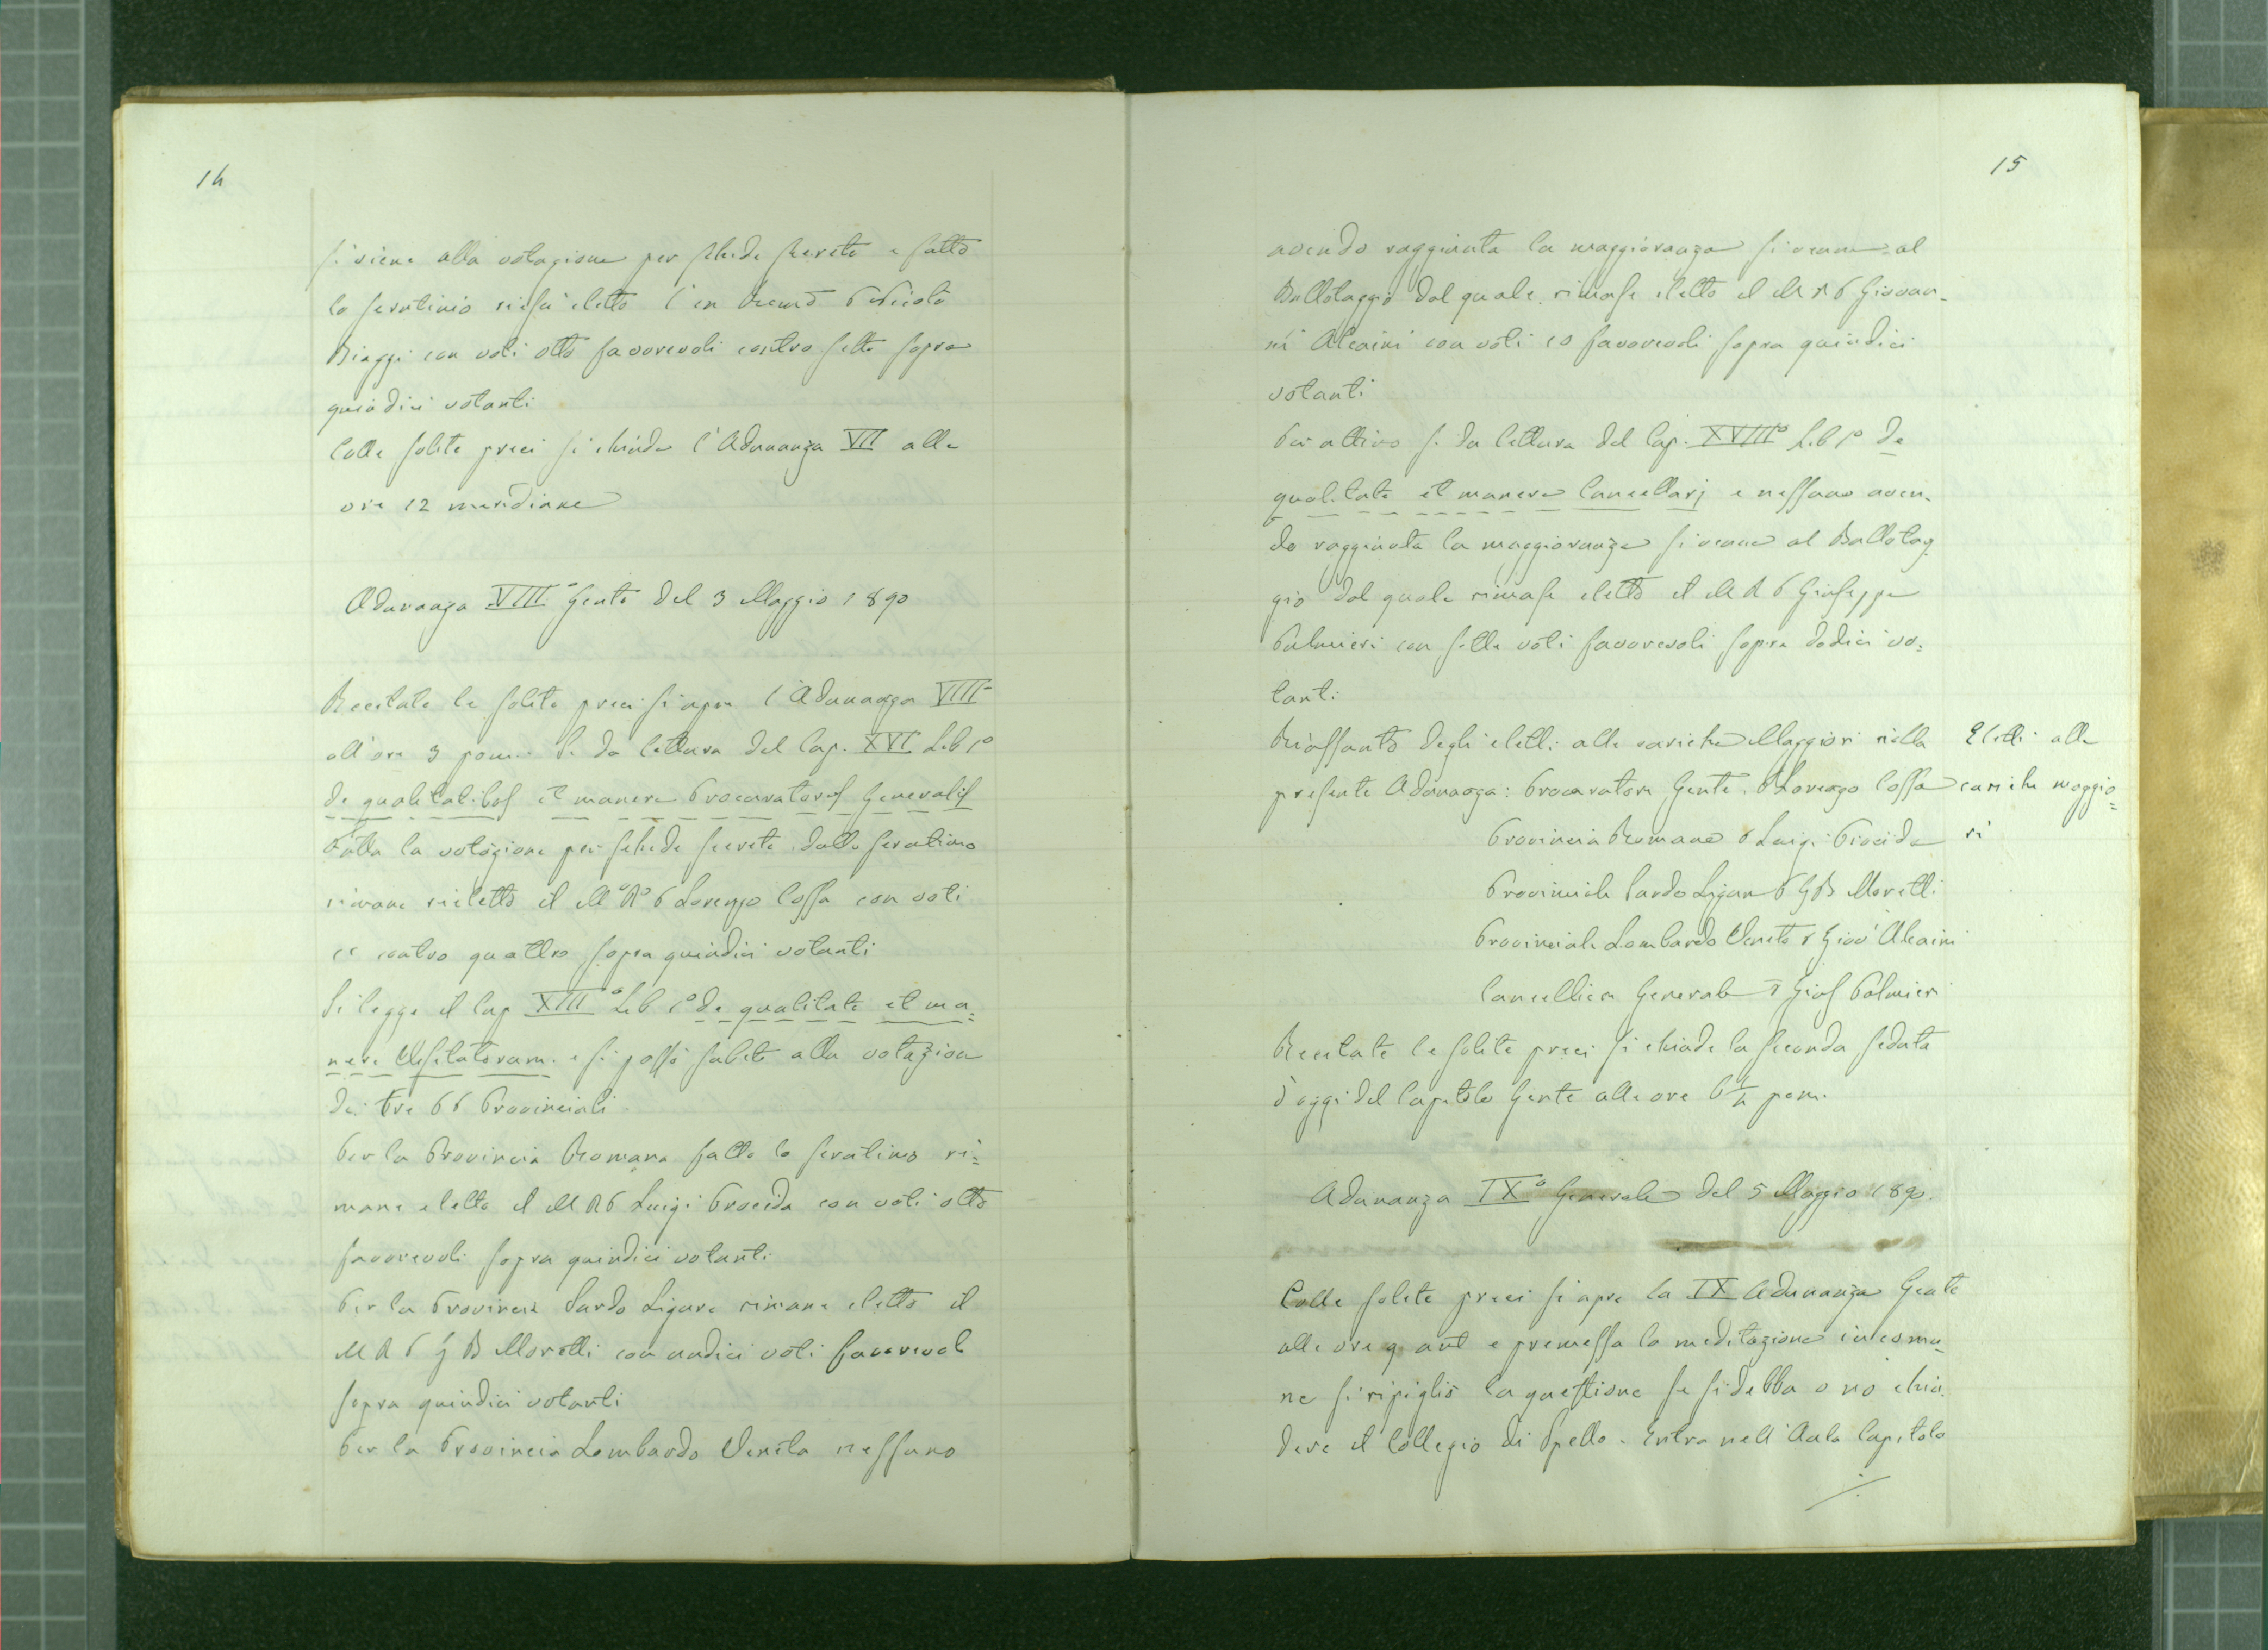 14
si viene alla votazione per schede secrete e fatto
lo scrutinio riesu' eletto l'en Decmo P Nicolo
Biaggi con voti otto favorevoli contro sette sopra
quindici votanti
Colle solite preci si chiude l'Adunanza VII alle
ore 12 meridiane
Adunanza VIII° Genle del 3 Maggio 1890
Recitate le solite preci si apre l'Adunanza VIII
all'ore 3 pom. Si da lettura del Cap. XVI Lib 1°
de qualitatibus et munere Procuratoris Generalis
Fatta la votazione per schede secrete dallo scrutinio
rimane rieletto il M° R° P Lorenzo Cossa con voti
11 contro quattro sopra quindici votanti
Si legge il Cap XIII° Lib 1° de qualitate et mu=
nere Visitatorum. e si passò subito alla votazion
dei tre PP Provinciali.
Per la Provincia Romana fatto lo scrutinio ri=
mane eletto il M R P Luigi Procida con voti otto
favorevoli sopra quindici votanti
Per la Provincia Sardo Ligure rimane eletto il
M R P G B Moretti con undici voti favorevol
sopra quindici votanti
Per la Provincia Lombardo Veneta nessuno
15
avendo raggiunta la maggioranza si venne al
Ballotaggio dal quale rimase eletto il M R P Giovan-
ni Alcaini con voti 10 favorevoli sopra quindici
votanti
Per ultimo si da lettura del Cap. XVIII° Lib 1° de
qualitate et munere Cancellarj e nessuno aven-
do raggiunta la maggioranza si venne al Ballotag
gio dal quale rimase eletto il M R P Giuseppe
Palmieri con sette voti favorevoli sopra dodici vo=
tanti
Riassunto degli eletti alle cariche Maggiori nella
presente Adunanza: Procuratore Genle. P Lorenzo Cossa
Elletti alle
cariche maggio=
ri
Provincia Romana P Luigi Procida
Provinciale Sardo Ligure P G B Moretti
Provinciale Lombardo Veneto P Giov Alcaini
Cancelliere Generale P Gius Palmieri
Recitate le solite preci si chiude la seconda seduta
d'oggi del Capitolo Genle alle ore 6 1/4 pom.
Adunanza IX° Generale del 5 Maggio 1890.
Colle solite preci si apre la IX Adunanza Genle
alle ore 9 ant e premessa la meditazione in comu=
ne si ripiglió la questione se si debba o no chiu
dere il Collegio di Spello. Entra nell'Aula Capitola